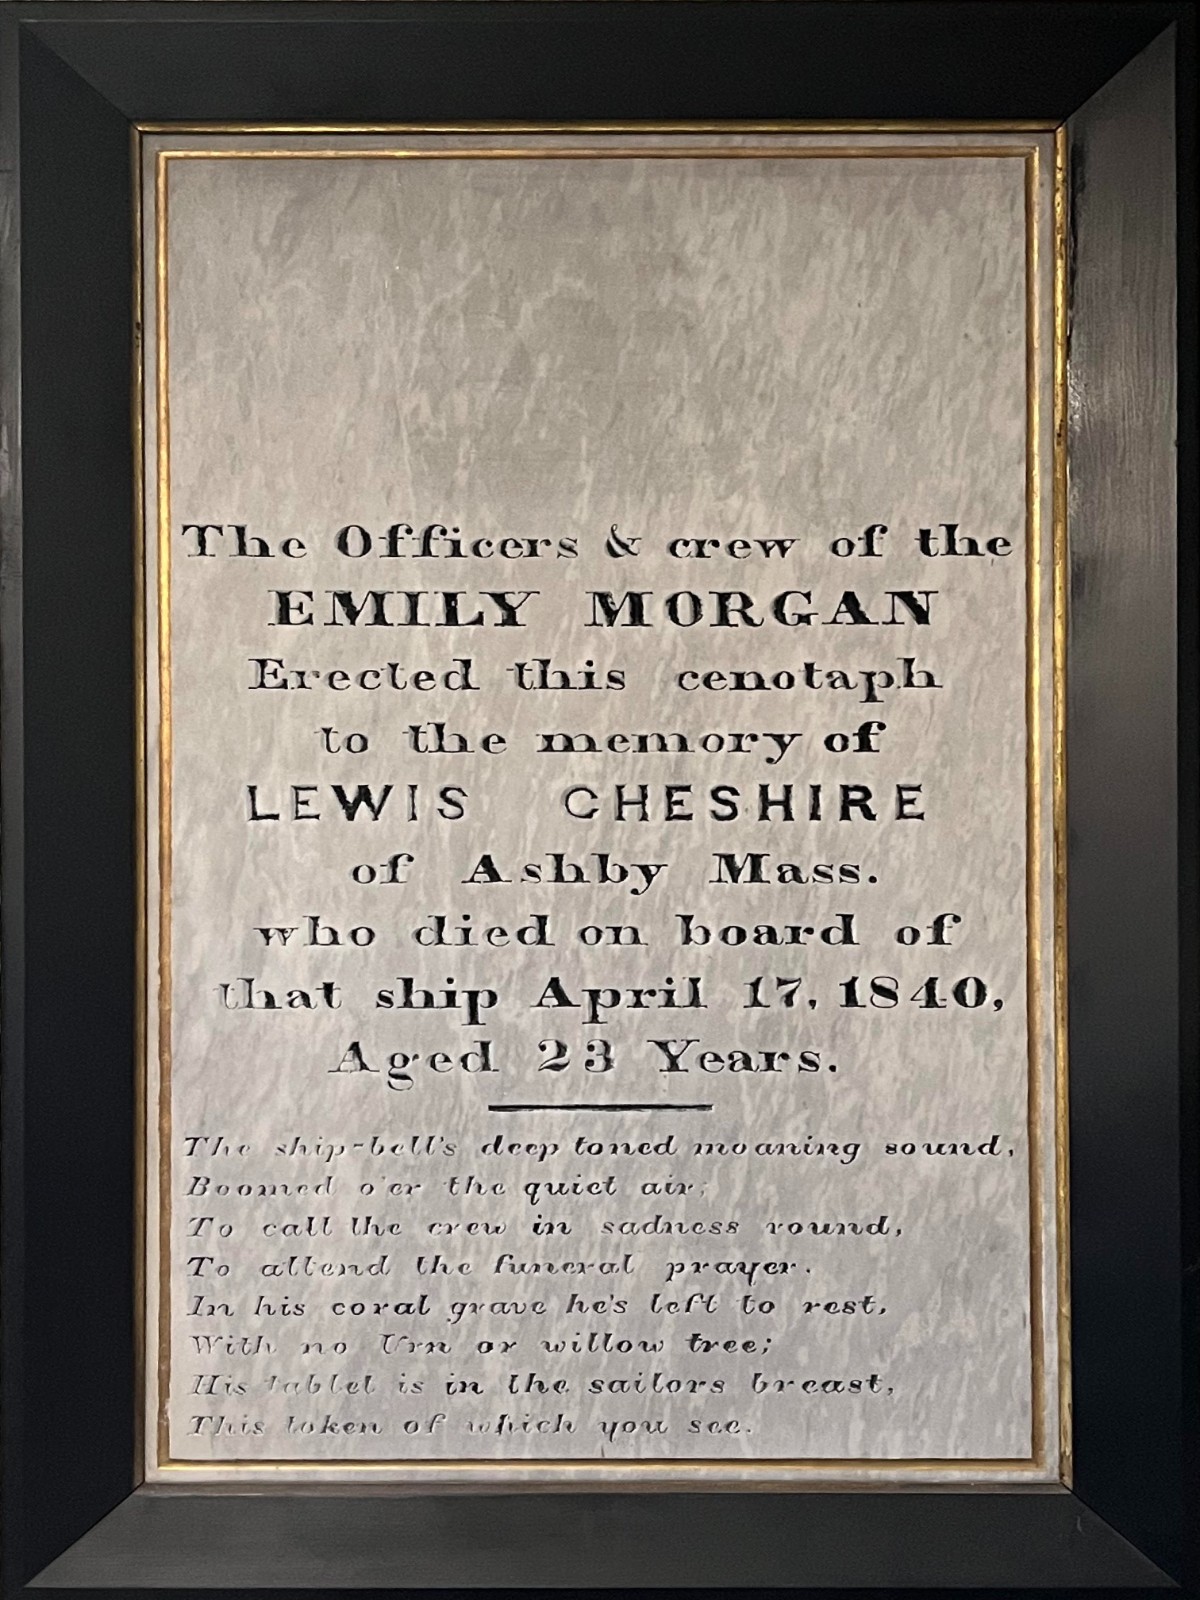 The Officers & crew of the
EMILY MORGAN
Erected this cenotaph
to the memory of
LEWIS CHESHIRE
of Ashby Mass.
who died on board of
that ship April 17, 1840,
Aged 23 Years.
The ship-bell's deep toned moaning sound,
Boomed o'er the quiet air;
To call the crew in sadness round,
To attend the funeral prayer.
In his coral grave he's left to rest,
With no Urn or willow tree;
His tablet is in the sailors breast,
This token of which you see.